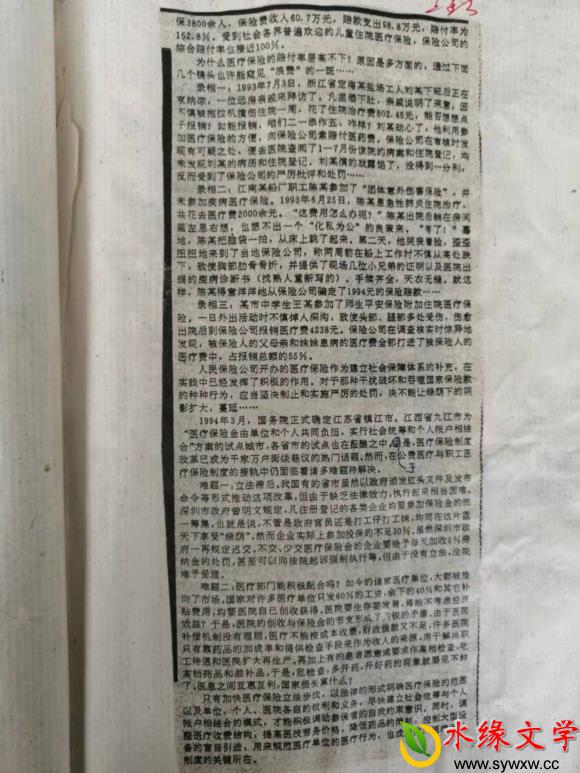 保3800余人,保险费收入60.7万元,赔款支出98.8万元,赔付率为
152.8%。受到社会各界普遍欢迎的儿童住院医疗保险,保险公司的
综合赔付率也接近100%。
为什么医疗保险的赔付率居高不下?原因是多方面的,通过下面
几个镜头也许能窥见“浪费”的一斑……
录相一:1993年7月3日,浙江省定海某盐场工人刘某下班后正在
家纳凉,一位远房亲戚来拜访了。几盅酒下肚,亲戚说明了来意,因
不慎被拖拉机撞伤住院一周,花了住院治疗费802.45元,能否想想点
子报销?如能报销,咱们二一添作五,咋样?刘某动心了,他利用参
加医疗保险的方便,向保险公司索赔付医药费。保险公司在审核时发
现有可疑之处,便去医院查阅了1—7月份该院的病案和住院登记,均
未发现刘某的病历和住院登记,刘某演的戏露馅了,没得到一分利,
反而受到了保险公司的严厉批评和处罚……
录相二:江南某船厂职工陈某参加了“团体意外伤害保险”,并
未参加疾病医疗保险。1993年6月25日,陈某患急性肺炎住院治疗,
共花去医疗费2000余元。“这费用怎么办呢?”陈某出院后躺在房间
里左思右想,也想不出一个“化私为公”的良策来。“有了!”蓦
地,陈某把脑袋一拍,从床上跳了起来。第二天,他哭丧着脸,歪歪
扭扭地来到了当地保险公司,称两周前在船上工作时不慎从高处跌
下,致使胸部肋骨骨折,并提供了现场几位小兄弟的证明以及医院出
据的疾病诊断书(找熟人重新写的)。手续齐全,天衣无缝。就这
样,陈某得意洋洋地从保险公司骗走了1994元的保险赔款……
录相三:某市中学生王某参加了师生平安保险附加住院医疗保
险。一日外出活动时不慎掉入深沟,致使头部、腿部多处受伤,伤愈
出院后到保险公司报销医疗费4238元。保险公司在调查核实时惊异地
发现,被保险人的父母亲和妹妹患病的医疗费全部打进了被保险人的
医疗费中,占报销总额的55%。
人民保险公司开办的医疗保险作为建立社会保障体系的补充,在
实践中已经发挥了积极的作用。对于那种干扰破坏和吞噬国家保险款
的种种行为,应当坚决制止和实施严厉的处罚,决不能让绿荫下的阴
影扩大,蔓延……
1994年3月,国务院正式确定江苏省镇江市、江西省九江市为
“医疗保险金由单位和个人共同负担,实行社会统筹和个人帐户相结
合”方案的试点城市,各省市的试点也在酝酿之中。但是,医疗保险制度
改革已成为千家万户街谈巷议的热门话题。然而,在公费医疗与职工医
疗保险制度的接轨中仍面临着诸多难题待解决。
难题一:立法滞后。我国有的省市虽然以政府颁发红头文件及发布
命令等形式推动这项改革,但由于缺乏法律效力,执行起来相当困难。
深圳市政府曾明文规定,凡注册登记的各类企业均要参加保险金的统
一筹集。也就是说,不管是政府官员还是打工仔打工妹,均同在这片蓝
天下享受“绿荫”。然而企业实际上参加投保的不足30%。虽然深圳市政
府一再规定迟交、不交、少交医疗保险金的企业要给予每天加收5%滞
纳金的处罚,甚至可以向法院起诉强制执行等,但由于没有立法,法院
难予受理。
难题二:医疗部门能积极配合吗?如今的诸家医疗单位,大都被推
向了市场。国家对许多医疗单位只发60%的工资,余下的40%和其它补
贴费用,均要医院自已创收获得。医院要生存要发展,焉能不考虑经济
效益?于是,医院的创收与保险金的节支形成了尖锐的矛盾。由于医院
补偿机制没有理顺,医疗不能按成本收费,财政拨款又不足,许多医院
只有靠药品的加成率和提供检查手段来作为收入的来源,用于解决职
工待遇和医院扩大再生产。再加上有的患者愿意或要求作高档检查,吃
高档药品和滋补品。于是,乱检查,多开药,开好药的现象就屡见不鲜
了,医患之间互惠互利,国家损失算什么?
只有加快医疗保险立法步伐,以法律的形式明确医疗保险的范围
以及单位、个人、医院各自的权利和义务,尽快建立社会统筹与个人
帐户相结合的模式,才能积极调动参保者的自我约束意识。同时,调
整医疗收费结构,提高医技劳务价格,降低药品的
备的盲目引进,用来规范医疗单位的医疗行为,也
制度的关键所在。
水缘文学
www.sywxw.cc